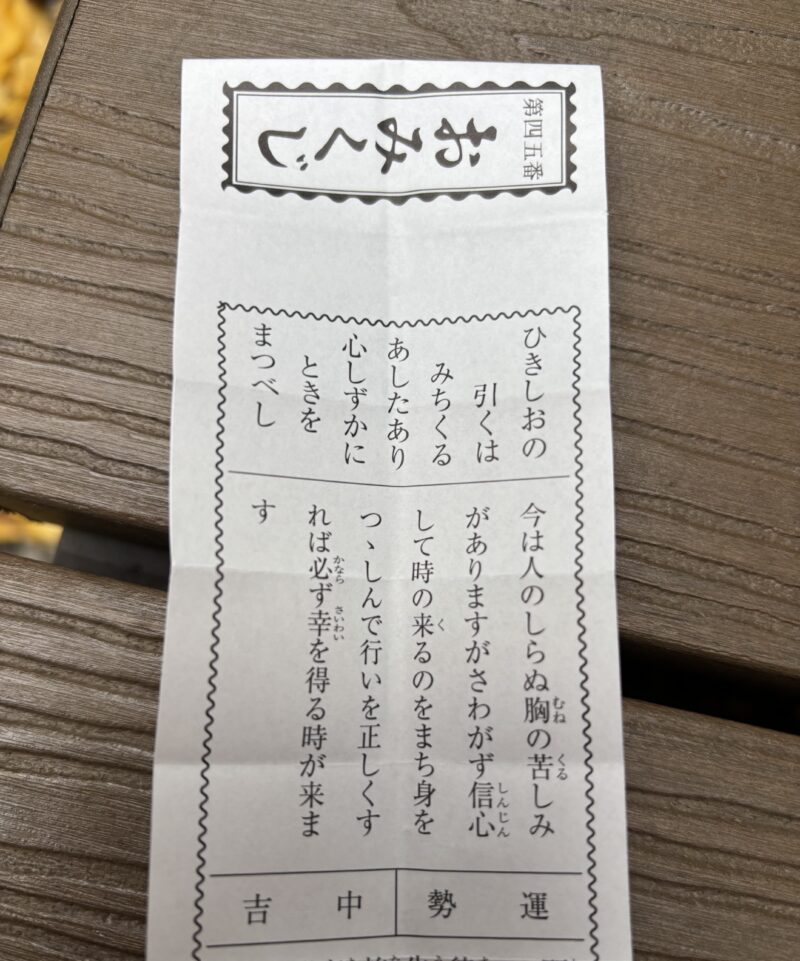 第四五番
おみくじ
ひきしおの
引くは
みちくる
あしたあり
心しずかに
ときを
まつべし
今は人のしらぬ胸の苦しみ
むね
くる
がありますがさわがず信心
しんじん
して時の来るのをまち身を
く
つゝしんで行いを正しくす
れば必ず幸を得る時が来ま
かなら
さいわい
す
運勢
中吉